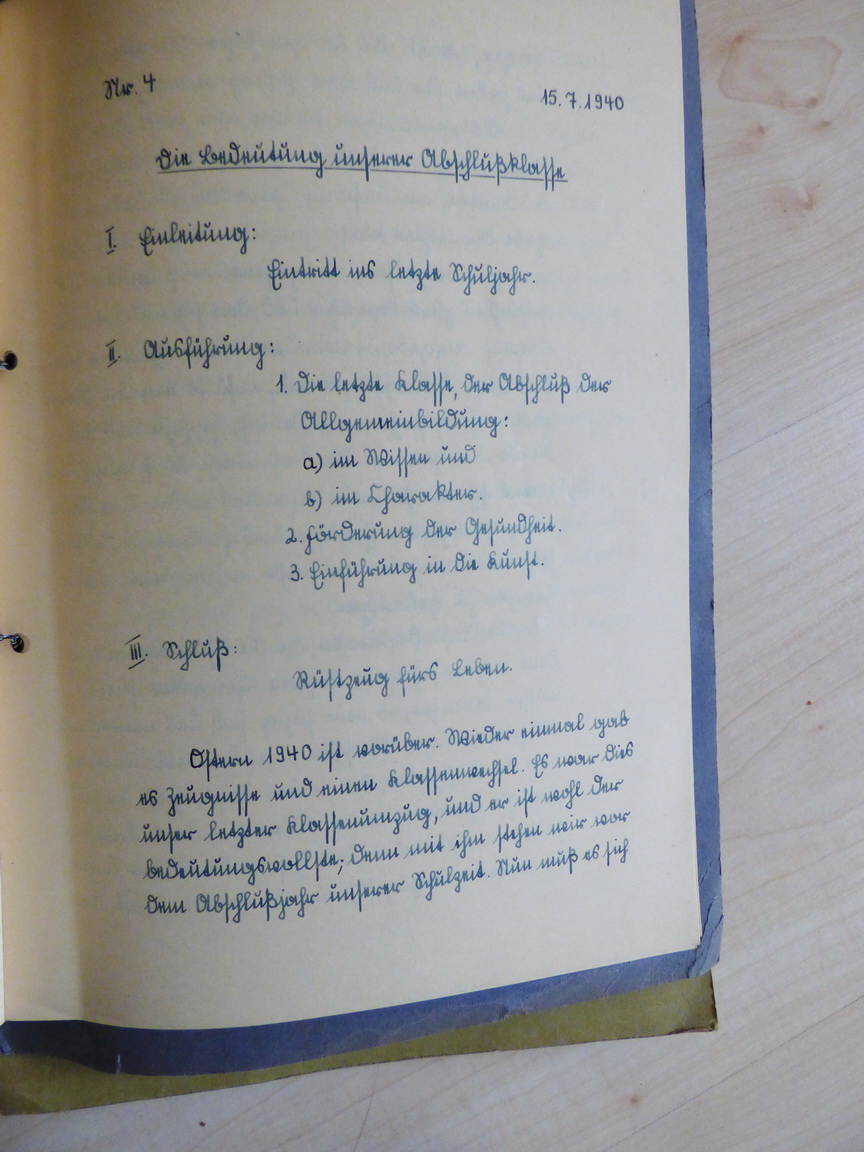 Nr. 4
15.7.1940
Die Bedeutung unserer Abschlußklasse
I. Einleitung:
Eintritt ins letzte Schuljahr.
II. Ausführung:
1. Die letzte Klasse, der Abschluß der
Allgemeinbildung:
a) im Wissen und
b) im Charakter.
2. Förderung der Gesundheit.
3. Einführung in die Kunst.
III. Schluß:
Rüstzeug fürs Leben.
Ostern 1940 ist vorüber. Wieder einmal gab
es Zeugnisse und einen Klassenwechsel. Es war dies
unser letzter Klassenumzug, und er ist wohl der
bedeutungsvollste; denn mit ihm stehen wir vor
dem Abschlußjahr unserer Schulzeit. Nun muß es sich